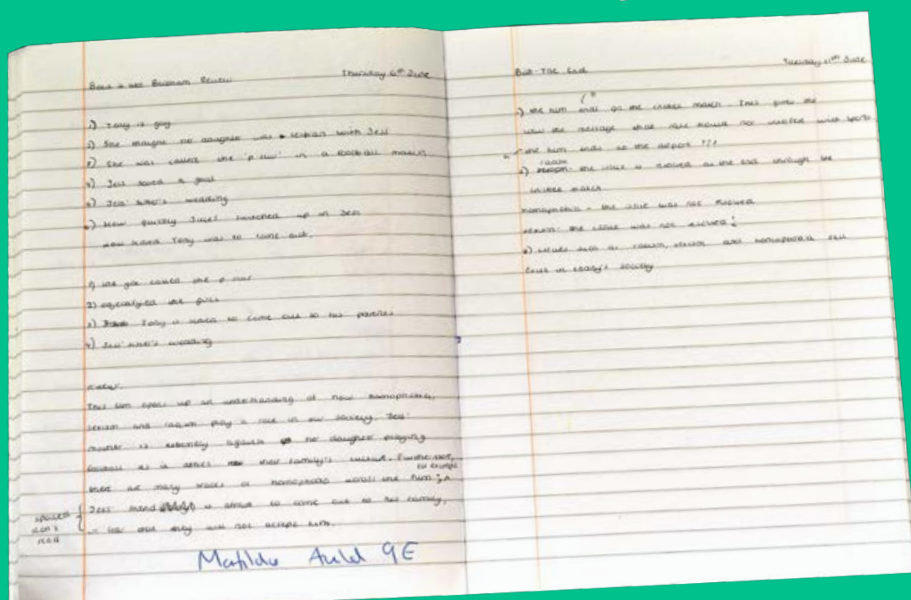 Bend it like Beckham Review Thursday 6th June
1) Tony is gay
2) She thought her daughter was a lesbian with Jess
3) She was called the 'p slur' in a football match
4) Jess saved a goal
5) Jess' sister's wedding
6) How quickly Jules switched up on Jess
How scared Tony was to come out.
1) She got called the p slur
2) the girls
3) Tony is scared to come out to his parents
4) Jess' sister's wedding
Review:
This film opens up an understanding of how homophobia,
sexism and racism play a role in our society. Jess'
mother is extremely against her daughter playing
football as it defies their family's culture. Furthermore,
for example
there are many traces of homophobia across the film; ^
Jess' friend is afraid to come out to his family,
in fear that they will not accept him.
Matilda Auld 9E
Bib-The End Tuesday 11th June
1) the film ends on the cricket match. This gives the
view the message that race should not interfere with sports
the film ends at the airport !!!
racism
2) the issue is resolved at the end through the
cricket match
homophobia - the issue was not resolved
sexism: the issue was not resolved
3) issues such as racism, sexism and homophobia still
exist in today's society